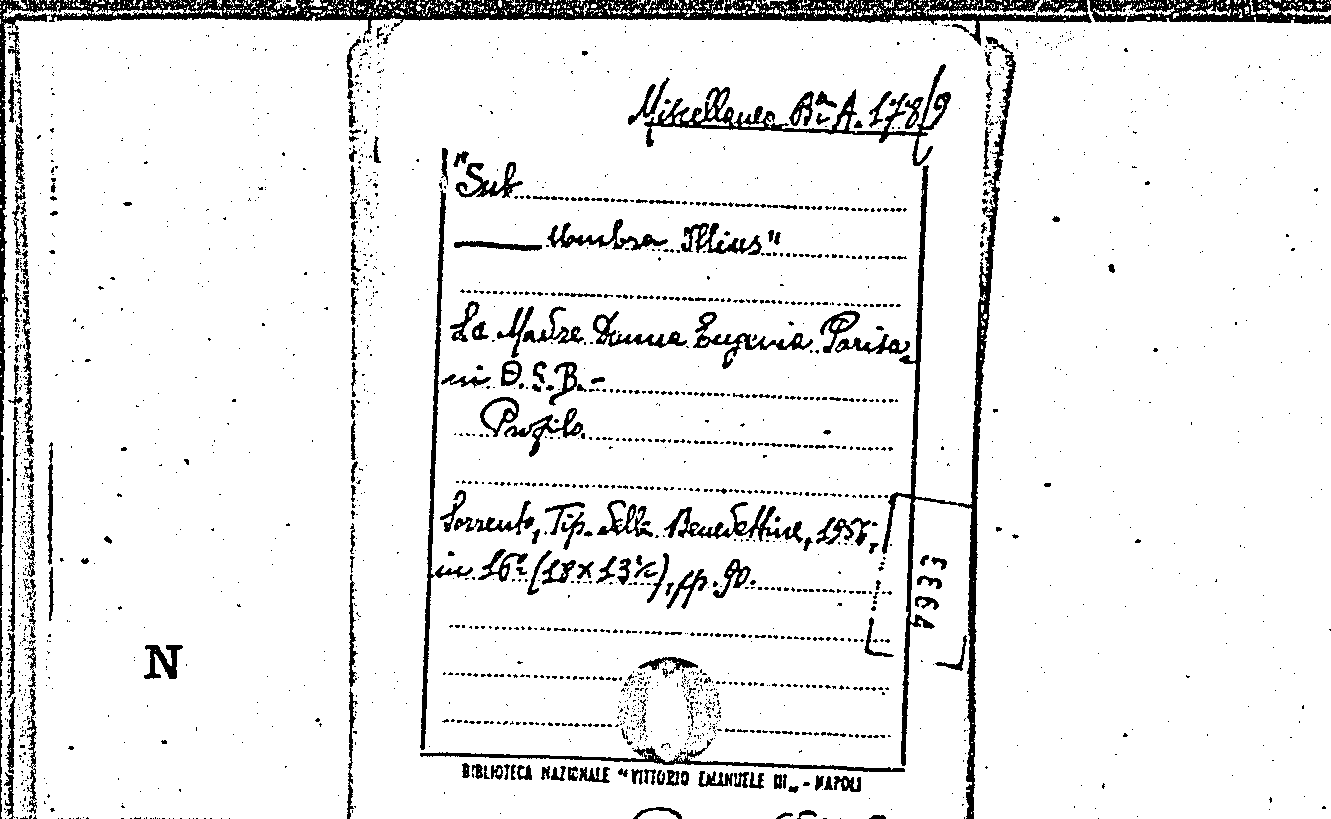 Miscellanea Ba A. 178/9
"Sub
Umbra Illius"
La Madre Donna Eugenia Parisa-
ni O.S.B. -
Profilo
Sorrento, Tip. delle Benedettine, 1956,
in 16° (18 x 13½), pp. 90.
4933
N
BIBLIOTECA NAZIONALE "VITTORIO EMANUELE III" - NAPOLI